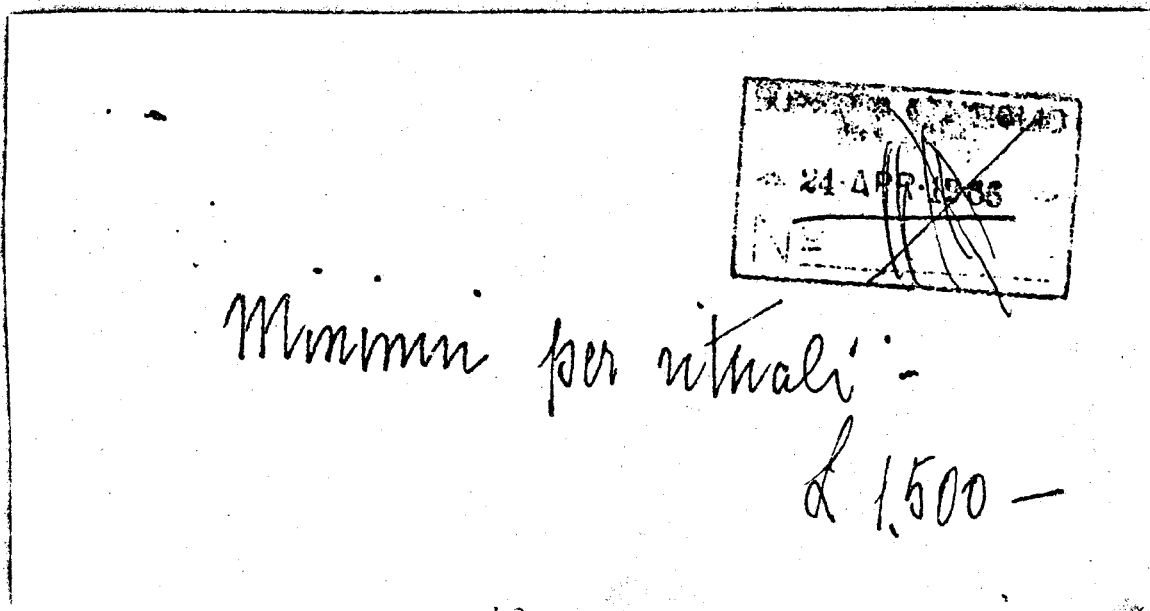 24 APR 1966
Nº
Minimi per rituali -
£ 1.500 -